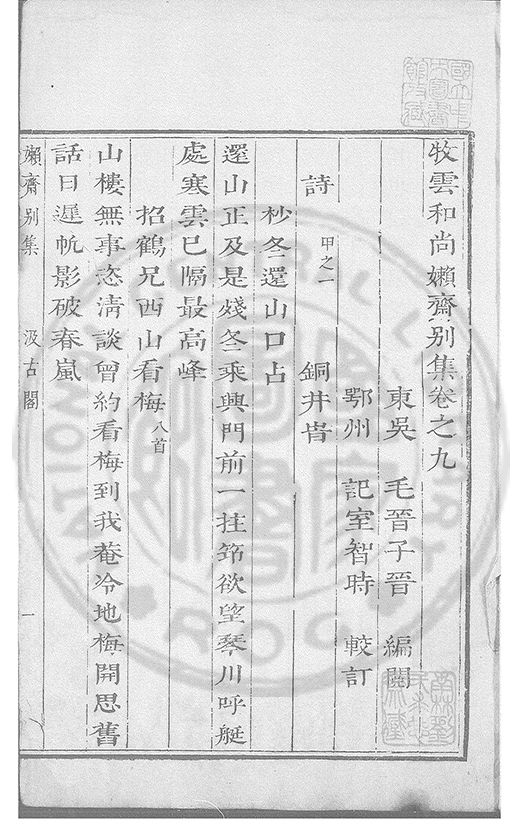 牧雲和尚嬾齋别集卷之九
東吳 毛晉子晉 編閱
鄂州 記室智時 較訂
詩 甲之一 銅井旹
杪冬還山口占
還山正及是殘冬乘興門前一拄笻欲望琴川呼艇
處寒雲已隔最高峰
招鶴兄西山看梅 八首
山樓無事恣清談曾約看梅到我菴冷地梅開思舊
話日遲帆影破春嵐
嬾齋别集 汲古閣 一
NATIONAL CENTRAL LIBRARY
R.O.C.